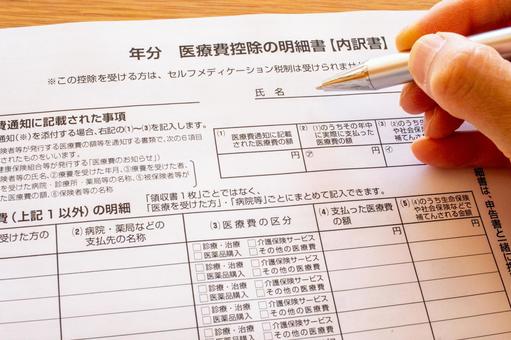 年分 医療費控除の明細書【内訳書】
※この控除を受ける方は、セルフメディケーション税制は受けられませ
氏 名
費通知に記載された事項
通知(※)を添付する場合、右記の(1)～(3)を記入します。
険者等が発行する医療費の額等を通知する書類で、次の6項目
されたものをいいます。
健康保険組合等が発行する「医療費のお知らせ」)
険者等の氏名、②療養を受けた年月、③療養を受けた者、
けた病院・診療所・薬局等の名称、⑤被保険者等が
費の額、⑥保険者等の名称
(1) 医療費通知に記載
された医療費の額
円
(2) (1)のうちその年中
に実際に支払った
医療費の額
㋐ 円
(3) (2)のうち
や社会保険
補てんされ
㋑
費(上記1以外)の明細
「領収書1枚」ごとではなく、
「医療を受けた方」・「病院等」ごとにまとめて記入できます。
受けた方の
(2) 病院・薬局などの
支払先の名称
(3) 医療費の区分
(4) 支払った医療費
の額
(5) (4)のうち生命保険
や社会保険などで
補てんされる金額
□診療・治療 □介護保険サービス
□医薬品購入 □その他の医療費
円
円
□診療・治療 □介護保険サービス
□医薬品購入 □その他の医療費
□診療・治療 □介護保険サービス
□医薬品購入 □その他の医療費
□診療・治療 □介護保険サービス
□医薬品購入 □その他の医療費
□診療・治療 □介護保険サービス
細書は、申告書と一緒に